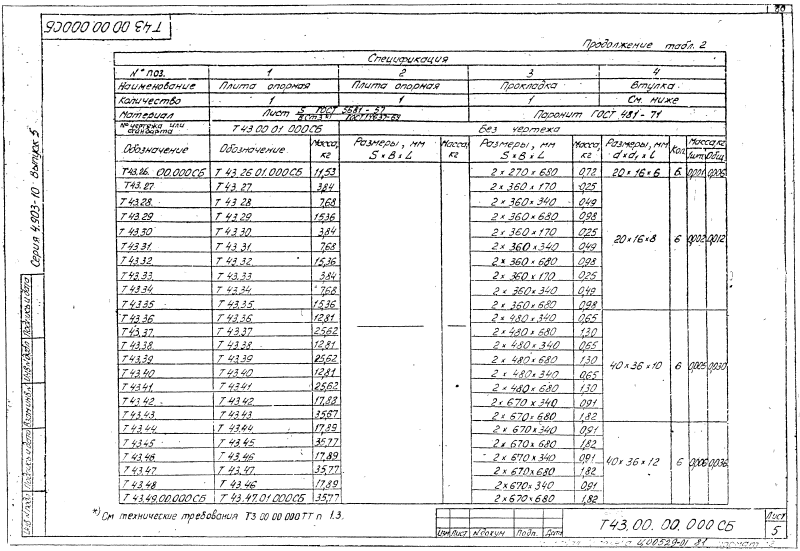 80
Т43 00 00 000СБ
Продолжение табл. 2
Спецификация
№ поз. 1 2 3 4
Наименование Плита опорная Плита опорная Прокладка Втулка
Количество 1 1 1 См. ниже
Материал Лист Паронит ГОСТ 481-71
№ чертежа или стандарта Т43 00 01 000СБ Без чертежа
Обозначение Обозначение Масса, кг Размеры, мм S×B×L Масса, кг Размеры, мм S×B×L Масса, кг Размеры, мм d×d₁×L Кол. Масса, кг 1шт. Общ.
Т43.26. 00.000СБ Т 43.26.01.000СБ 11,53 2×270×680 0,72 20×16×6 6 0,001 0,006
Т43.27. Т 43 27. 3,84 2×360×170 0,25
Т43.28. Т 43 28. 7,68 2×360×340 0,49
Т43.29 Т 43.29. 15,36 2×360×680 0,98
Т43.30 Т 43 30. 3,84 2×360×170 0,25
Т43.31. Т 43 31. 7,68 2×360×340 0,49 20×16×8 6 0,002 0,012
Т43.32. Т 43.32. 15,36 2×360×680 0,98
Т43.33. Т 43.33. 3,84 2×360×170 0,25
Т43.34. Т 43.34. 7,68 2×360×340 0,49
Т43.35 Т 43.35. 15,36 2×360×680 0,98
Т43.36. Т 43.36. 12,81 2×480×340 0,65
Т43.37. Т 43.37 25,62 2×480×680 1,30
Т43.38. Т 43.38. 12,81 2×480×340 0,65
Т43.39 Т 43.39 25,62 2×480×680 1,30
Т43.40 Т 43.40 12,81 2×480×340 0,65 40×36×10 6 0,005 0,030
Т43.41. Т 43.41. 25,62 2×480×680 1,30
Т43.42 Т 43.42. 17,83 2×670×340 0,91
Т43.43. Т 43.43. 35,67 2×670×680 1,82
Т43.44. Т 43.44. 17,89 2×670×340 0,91
Т43.45 Т 43.45. 35,77 2×670×680 1,82
Т43.46. Т 43.46 17,89 2×670×340 0,91 40×36×12 6 0,006 0,036
Т43.47. Т 43.47. 35,77 2×670×680 1,82
Т43.48 Т 43.46 17,89 2×670×340 0,91
Т43.49.00.000СБ Т 43.47.01.000СБ 35,77 2×670×680 1,82
*) См технические требования Т3 00 00 000 ТТ п 1.3.
Серия 4.903-10 Выпуск 5
Изм Лист № докум Подп. Дата
Т43.00.00.000СБ
Лист
5